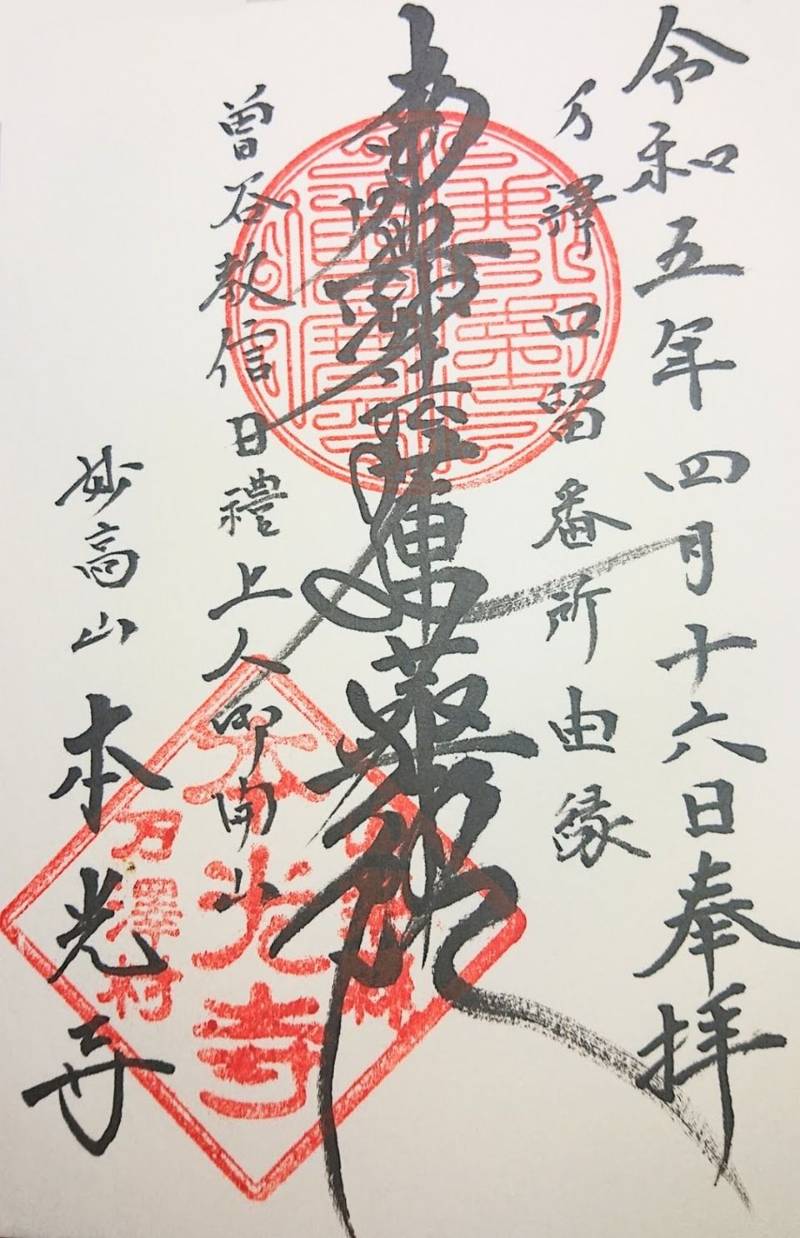 令和五年四月十六日奉拝
万澤口留番所由縁
南無妙法蓮華経
曽谷教信日禮上人御開山
妙高山本光寺
本光寺
万澤村